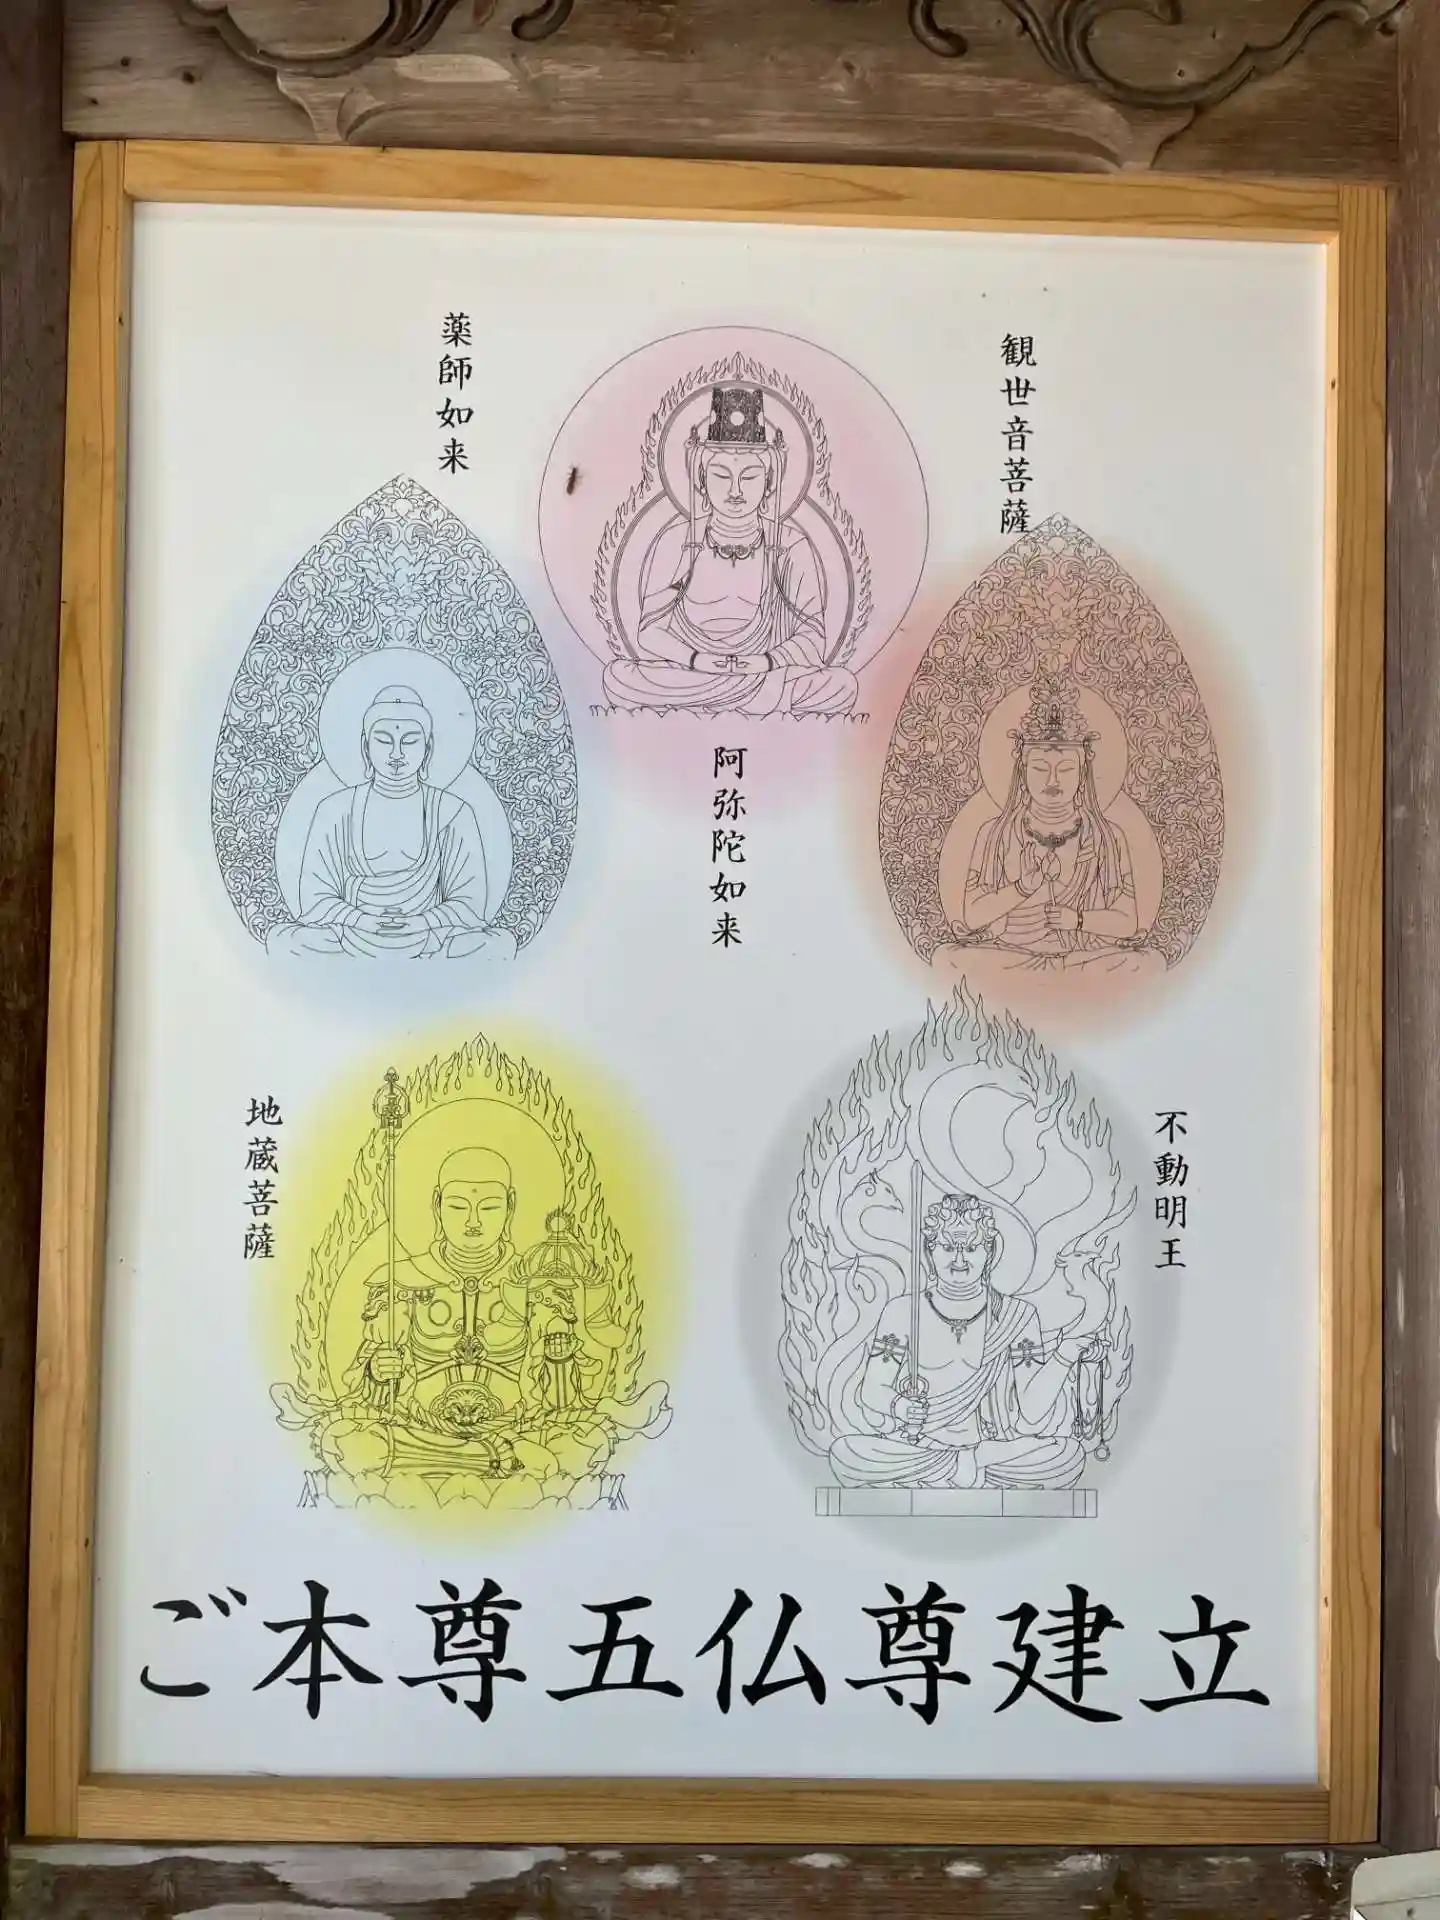 薬師如来
観世音菩薩
阿弥陀如来
地蔵菩薩
不動明王
ご本尊五仏尊建立